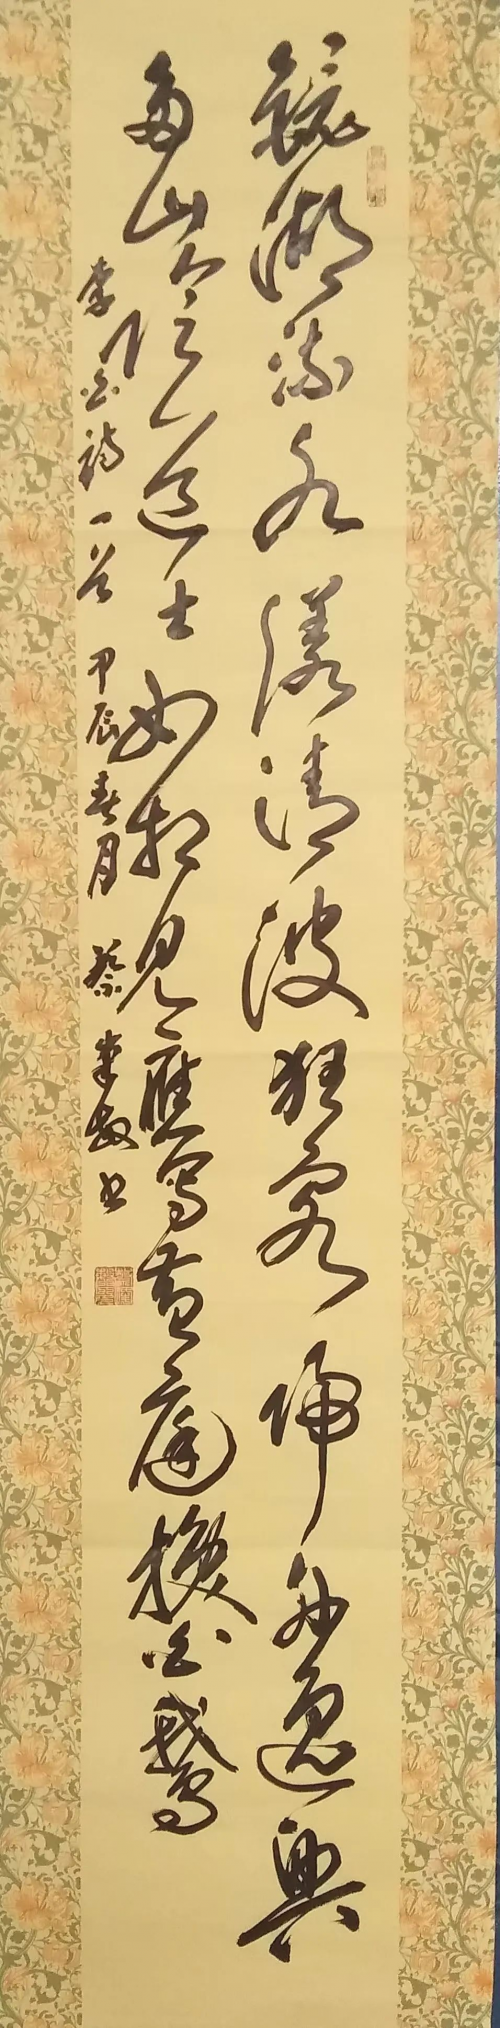 鏡湖流水漾清波狂客歸舟逸興
多山陰道士如相見應寫黃庭換白鵝
李白詩一首 甲辰春月 蔡 敏書